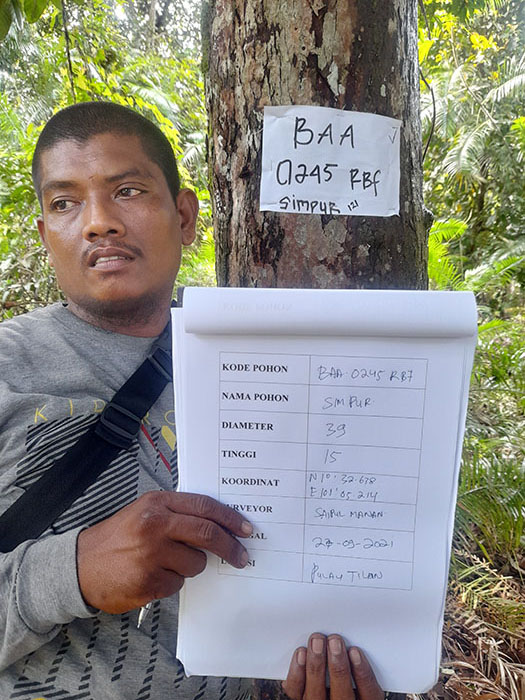 BAA
0245 RBF
SIMPUR 121
KODE POHON BAA 0245 RBF
NAMA POHON SIMPUR
DIAMETER 39
TINGGI 15
KOORDINAT N 1°. 32. 678
E 101° 05. 214
SURVEYOR SAIPUL MANAN
GAL 27-09-2021
SI PULAU TILAN